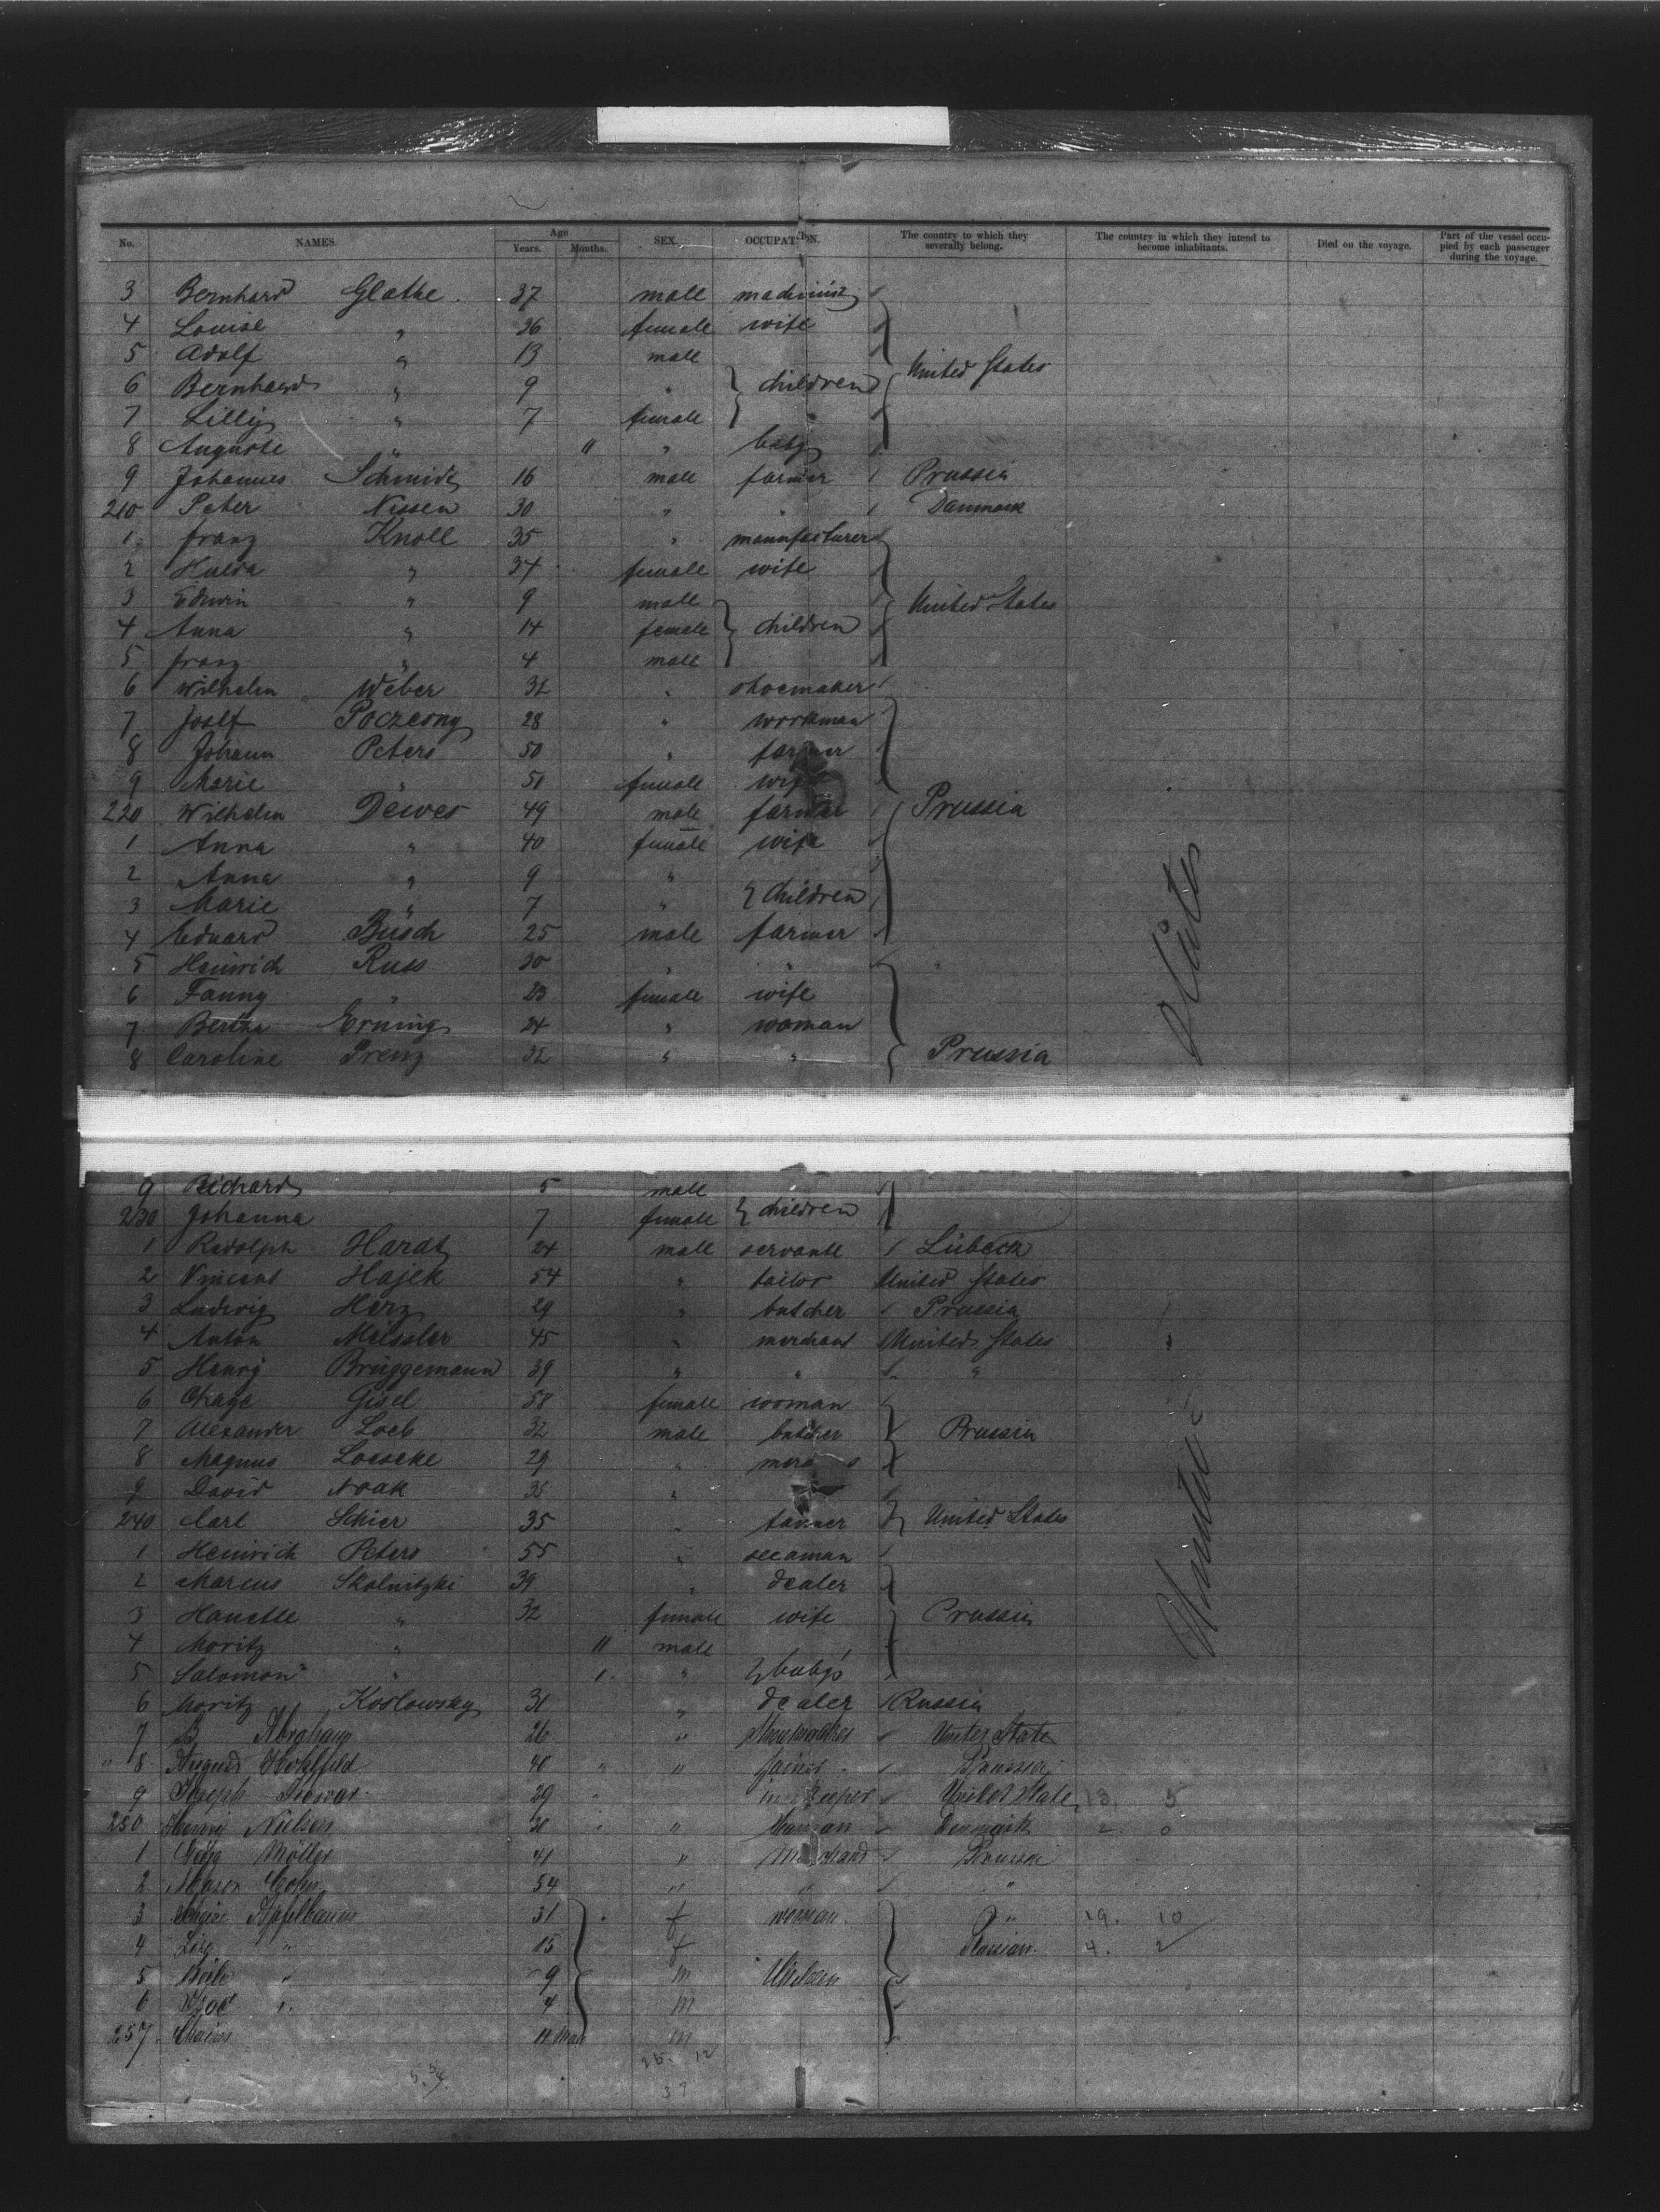 No. NAMES. Age Years. Months. SEX. OCCUPATION. The country to which they severally belong. The country in which they intend to become inhabitants. Died on the voyage. Part of the vessel occupied by each passenger during the voyage.
3 Bernhard Glathe 37 male machinist
4 Louise " 36 female wife
5 Adolf " 13 male United States
6 Bernhard " 9 " children
7 Lilly " 7 female
8 Auguste " 11 " baby
9 Johannes Schmidt 16 male farmer Prussia
210 Peter Nissen 30 " " Danmark
1 Franz Knoll 35 " manufacturer
2 Hulda " 34 female wife
3 Edwin " 9 male United States
4 Anna " 14 female children
5 Franz " 4 male
6 Wilhelm Weber 32 " shoemaker
7 Josef Poczerny 28 " workman
8 Johann Peters 50 " farmer
9 Marie " 51 female wife
220 Wilhelm Dewes 49 male farmer Prussia
1 Anna " 40 female wife
2 Anna " 9 "
3 Marie " 7 " children
4 Eduard Busch 25 male farmer
5 Heinrich Russ 30 " "
6 Fanny " 23 female wife
7 Bertha Erning 24 " woman
8 Caroline Prenz 32 " " Prussia
9 Richard 5 male
230 Johanna 7 female children
1 Rudolph Hardt 24 male servante Lübeck
2 Vincent Hajek 54 " tailor United States
3 Ludwig Herz 29 " butcher Prussia
4 Anton Meissler 45 " merchant United States
5 Henry Brüggemann 39 " " "
6 Chaye Gisel 58 female woman
7 Alexander Loeb 32 male butcher Prussia
8 Magnus Loeseke 29 "
9 David Noak 35 "
240 Carl Schier 35 " United States
1 Heinrich Peters 55 " seeaman
2 Marcus Skolnitzki 39 " dealer
3 Hanette " 32 female wife Prussia
4 Moritz " 11 male
5 Salomon " 1 " baby's
6 Moritz Koslowsky 31 " dealer Russia
7 B. Abraham 26 " Shoemacher Unitet State
8 August Hohlfeld 40 " Prussia
9 Joseph 29 innkeeper Unitet State 13 5
250 Henry Nielsen 30 " Denmark 2 0
1 Möller 41 " merchand Prussia
2 Cohn 54 " " "
3 Apfelbaum 31 f woman " 19. 10
4 " 15 f Russian 4. 2
5 " 9 m
6 " 4 m
257. 11 m
26. 12
37
States
United